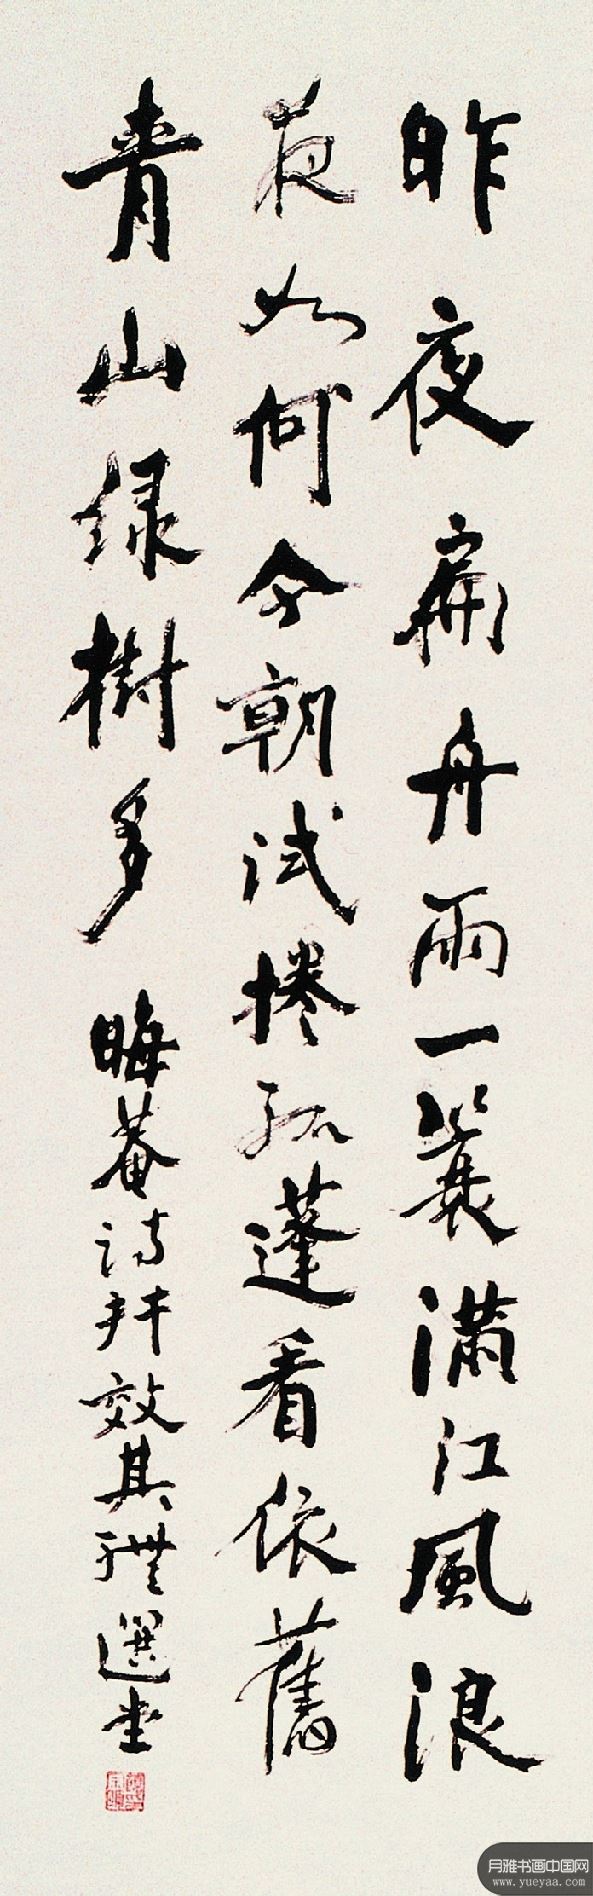 昨夜扁舟雨一蓑滿江風浪
夜如何今朝試捲孤蓬看依舊
青山綠樹多 晦菴詩并效其體 選堂
月雅书画中国网
www.yueyaa.com